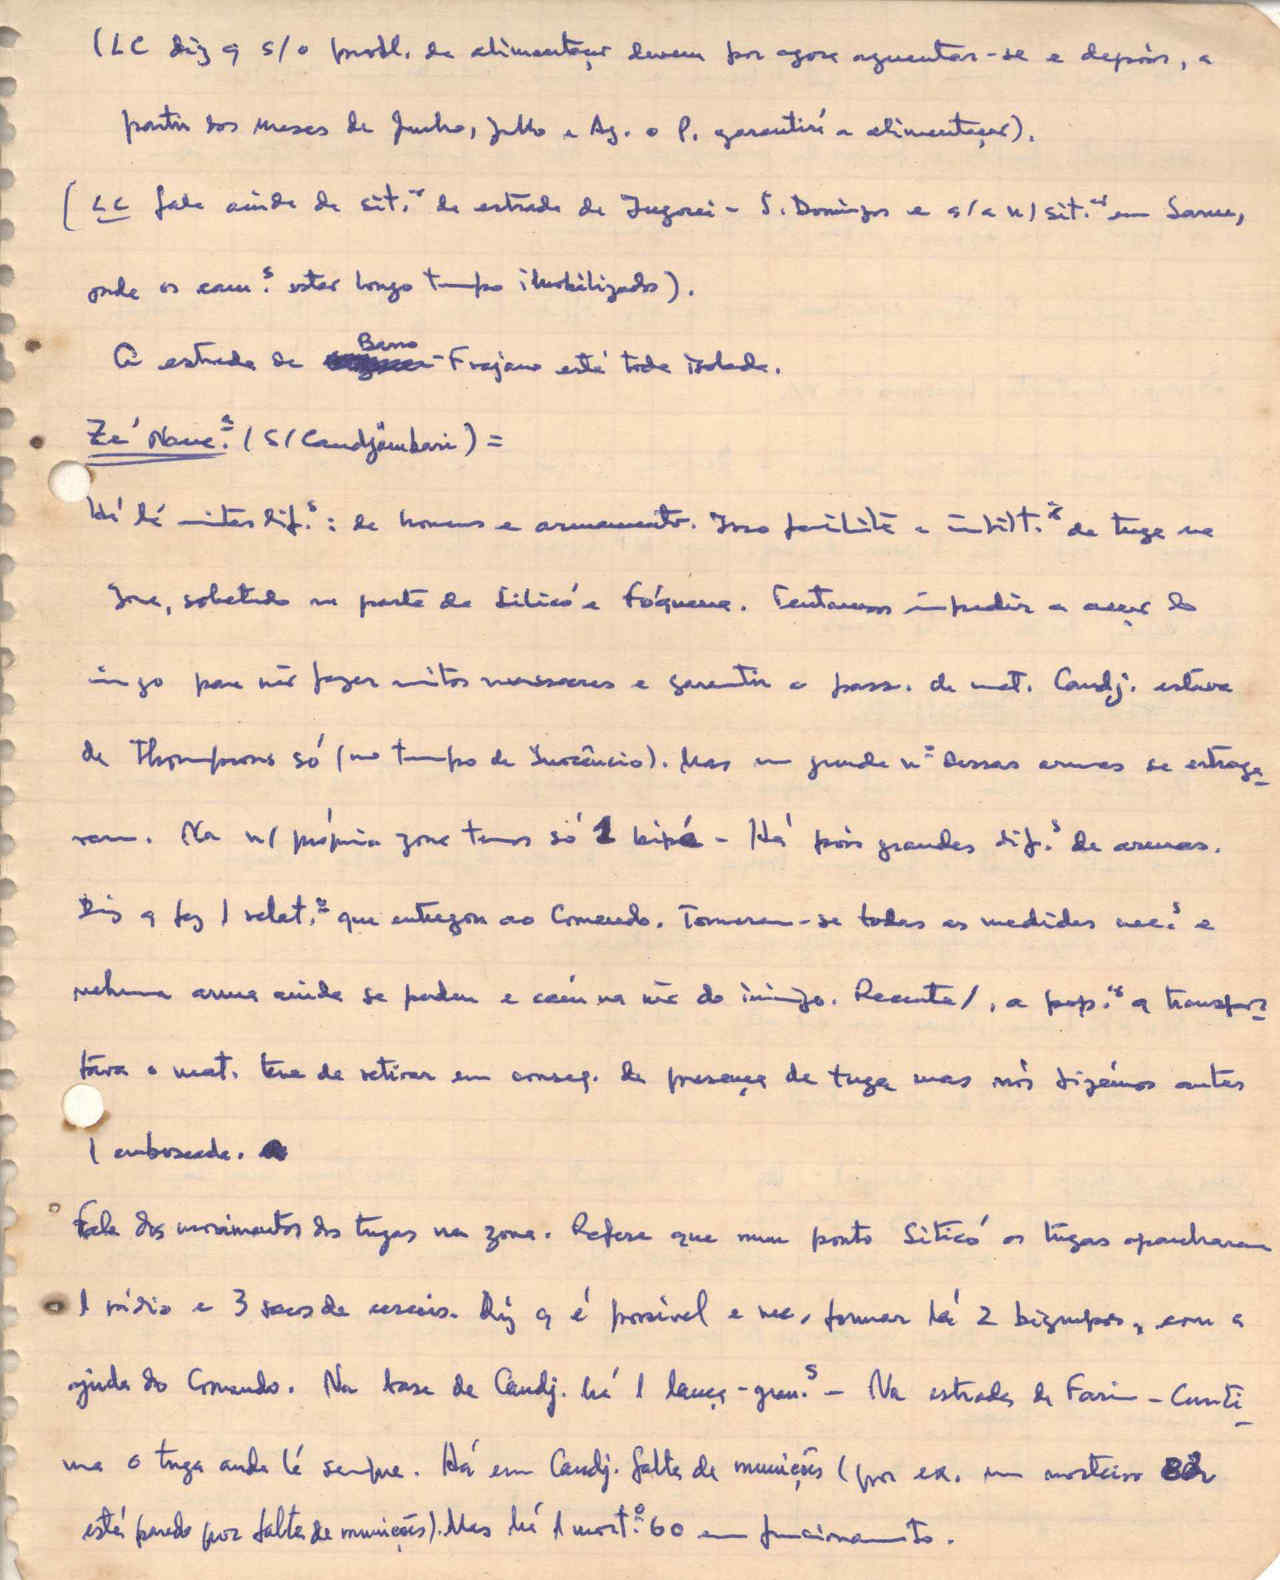 (LC diz q s/o probl. da alimentaçar devem por agora aguentar-se e depois, a
partir dos meses de Junho, Julho e Ag. o P. garantirá a alimentaçar).
(LC fala ainda da sit.ar da estrada de Ingorei - S. Domingos e s/a n/ sit.ar em Sano,
onde os cam.s estar longo tempo imobilizados).
A estrada de Barro - Frajano está toda isolada.
Zé Name.a (s/ Candjâmbari) =
Há lá mitas dif.s: de homens e armamento. Isso facilita a infilt.ar da tuga na
zona, sobretudo na parte de Siticó e Fóquena. Tentamos impedir a acçar do
inigo para nãr fazer mitos massacres e garantir a pass. de mat. Candj. estava
de Thompsons só (no tempo de Inocêncio). Mas um grande nº dessas armas se estraga-
ram. Na n/ própria zona temos só 1 bipé - Há pois grandes dif.s de armas.
Diz q fez 1 relat.º que entregou ao Comando. Tomaram-se todas as medidas nec.s e
nehuma arma ainda se perdeu e caiu na mãr do inimigo. Recente/, a pop.ar q transpor-
tava o mat. teve de retirar em conseq. da presença da tuga mas nós fizémos antes
1 emboscada.
Fala dos movimentos dos tugas na zona. Refere que num ponto Siticó os tugas apanharam
1 rádio e 3 sacos de cereais. Diz q é possível e nec. formar lá 2 bigrupos, com a
ajuda do Comando. Na base de Candj. há 1 lança-gran.s - Na estrada de Farim - Cunti-
ma o tuga anda lá sempre. Há em Candj. falta de munições (por ex. um morteiro 82
está parado por falta de munições). Mas há 1 mort.º 60 em funcionamento.